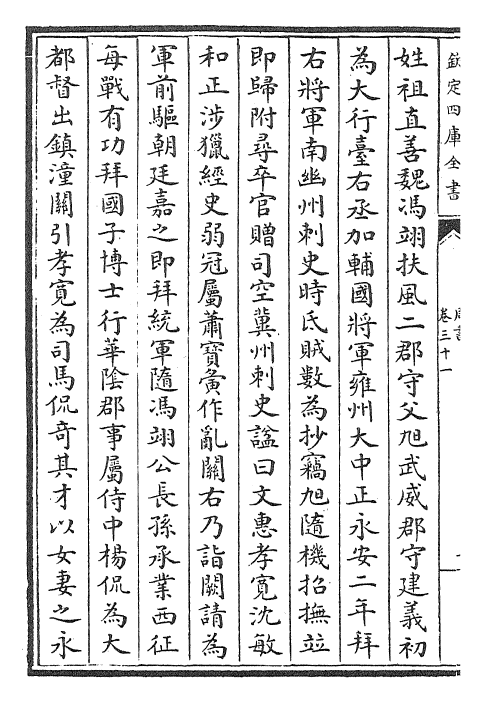 欽定四庫全書
卷三十一
姓祖直善魏馮翊扶風二郡守父旭武威郡守建義初
為大行臺右丞加輔國將軍雍州大中正永安二年拜
右將軍南幽州刺史時氐賊數為抄竊旭隨機招撫竝
即歸附尋卒官贈司空冀州刺史諡曰文惠孝寛沈敏
和正涉獵經史弱冠屬蕭寶夤作亂關右乃詣闕請為
軍前驅朝廷嘉之即拜統軍隨馮翊公長孫承業西征
每戰有功拜國子博士行華陰郡事屬侍中楊侃為大
都督出鎮潼關引孝寛為司馬侃奇其才以女妻之永